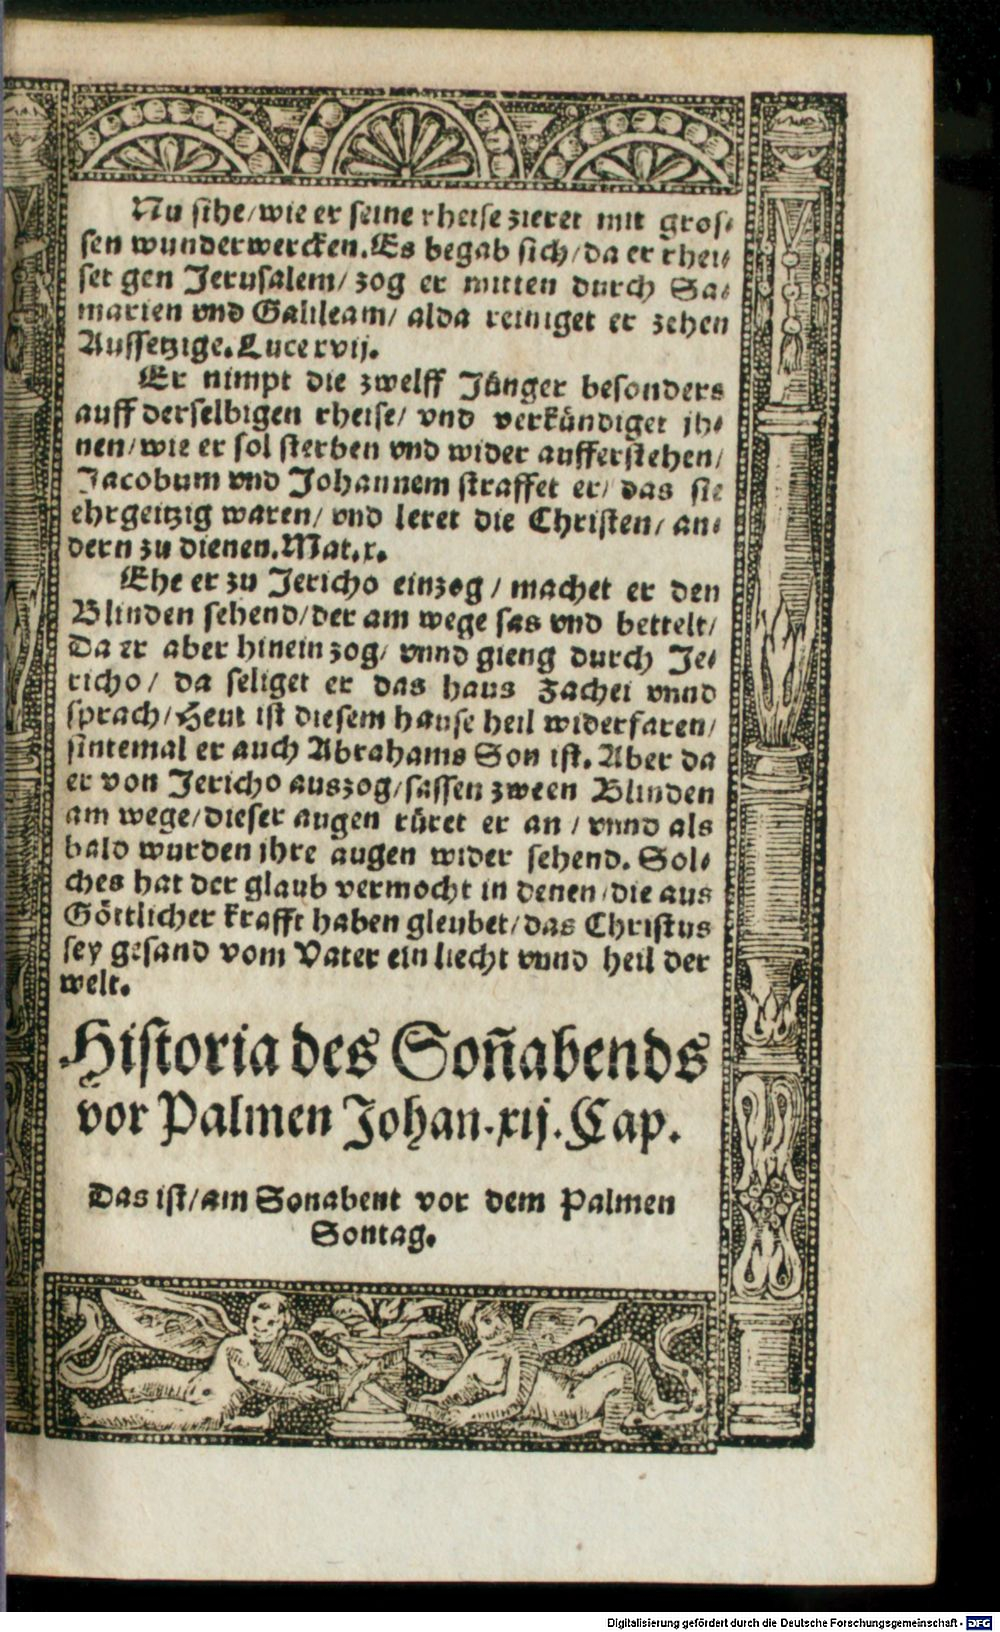 Nu sihe/wie er seine rheise zieret mit gros⸗
sen wunderwercken.Es begab sich/da er rhei⸗
set gen Jerusalem/ zog er mitten durch Sa⸗
marien vnd Galileam/ alda reiniget er zehen
Aussetzige.Luce xvij.
Er nimpt die zwelff Jünger besonders
auff derselbigen rheise/ vnd verkündiget jh⸗
nen/wie er sol sterben vnd wider aufferstehen/
Jacobum vnd Johannem straffet er/ das sie
ehrgeitzig waren/ vnd leret die Christen/ an⸗
dern zu dienen.Mat.x.
Ehe er zu Jericho einzog/ machet er den
Blinden sehend/der am wege sas vnd bettelt/
Da er aber hinein zog/ vnnd gieng durch Je⸗
richo/ da seliget er das haus Zachei vnnd
sprach/Heut ist diesem hause heil widerfaren/
sintemal er auch Abrahams Son ist. Aber da
er von Jericho auszog/sassen zween Blinden
am wege/dieser augen rüret er an/ vnnd als
bald wurden ihre augen wider sehend. Sol⸗
ches hat der glaub vermocht in denen/die aus
Göttlicher krafft haben gleubet/das Christus
sey gesand vom Vater ein liecht vnnd heil der
welt.
Historia des Soñabends
vor Palmen Johan.xij.Cap.
Das ist/am Sonabent vor dem Palmen
Sontag.
Digitalisierung gefördert durch die Deutsche Forschungsgemeinschaft - DFG